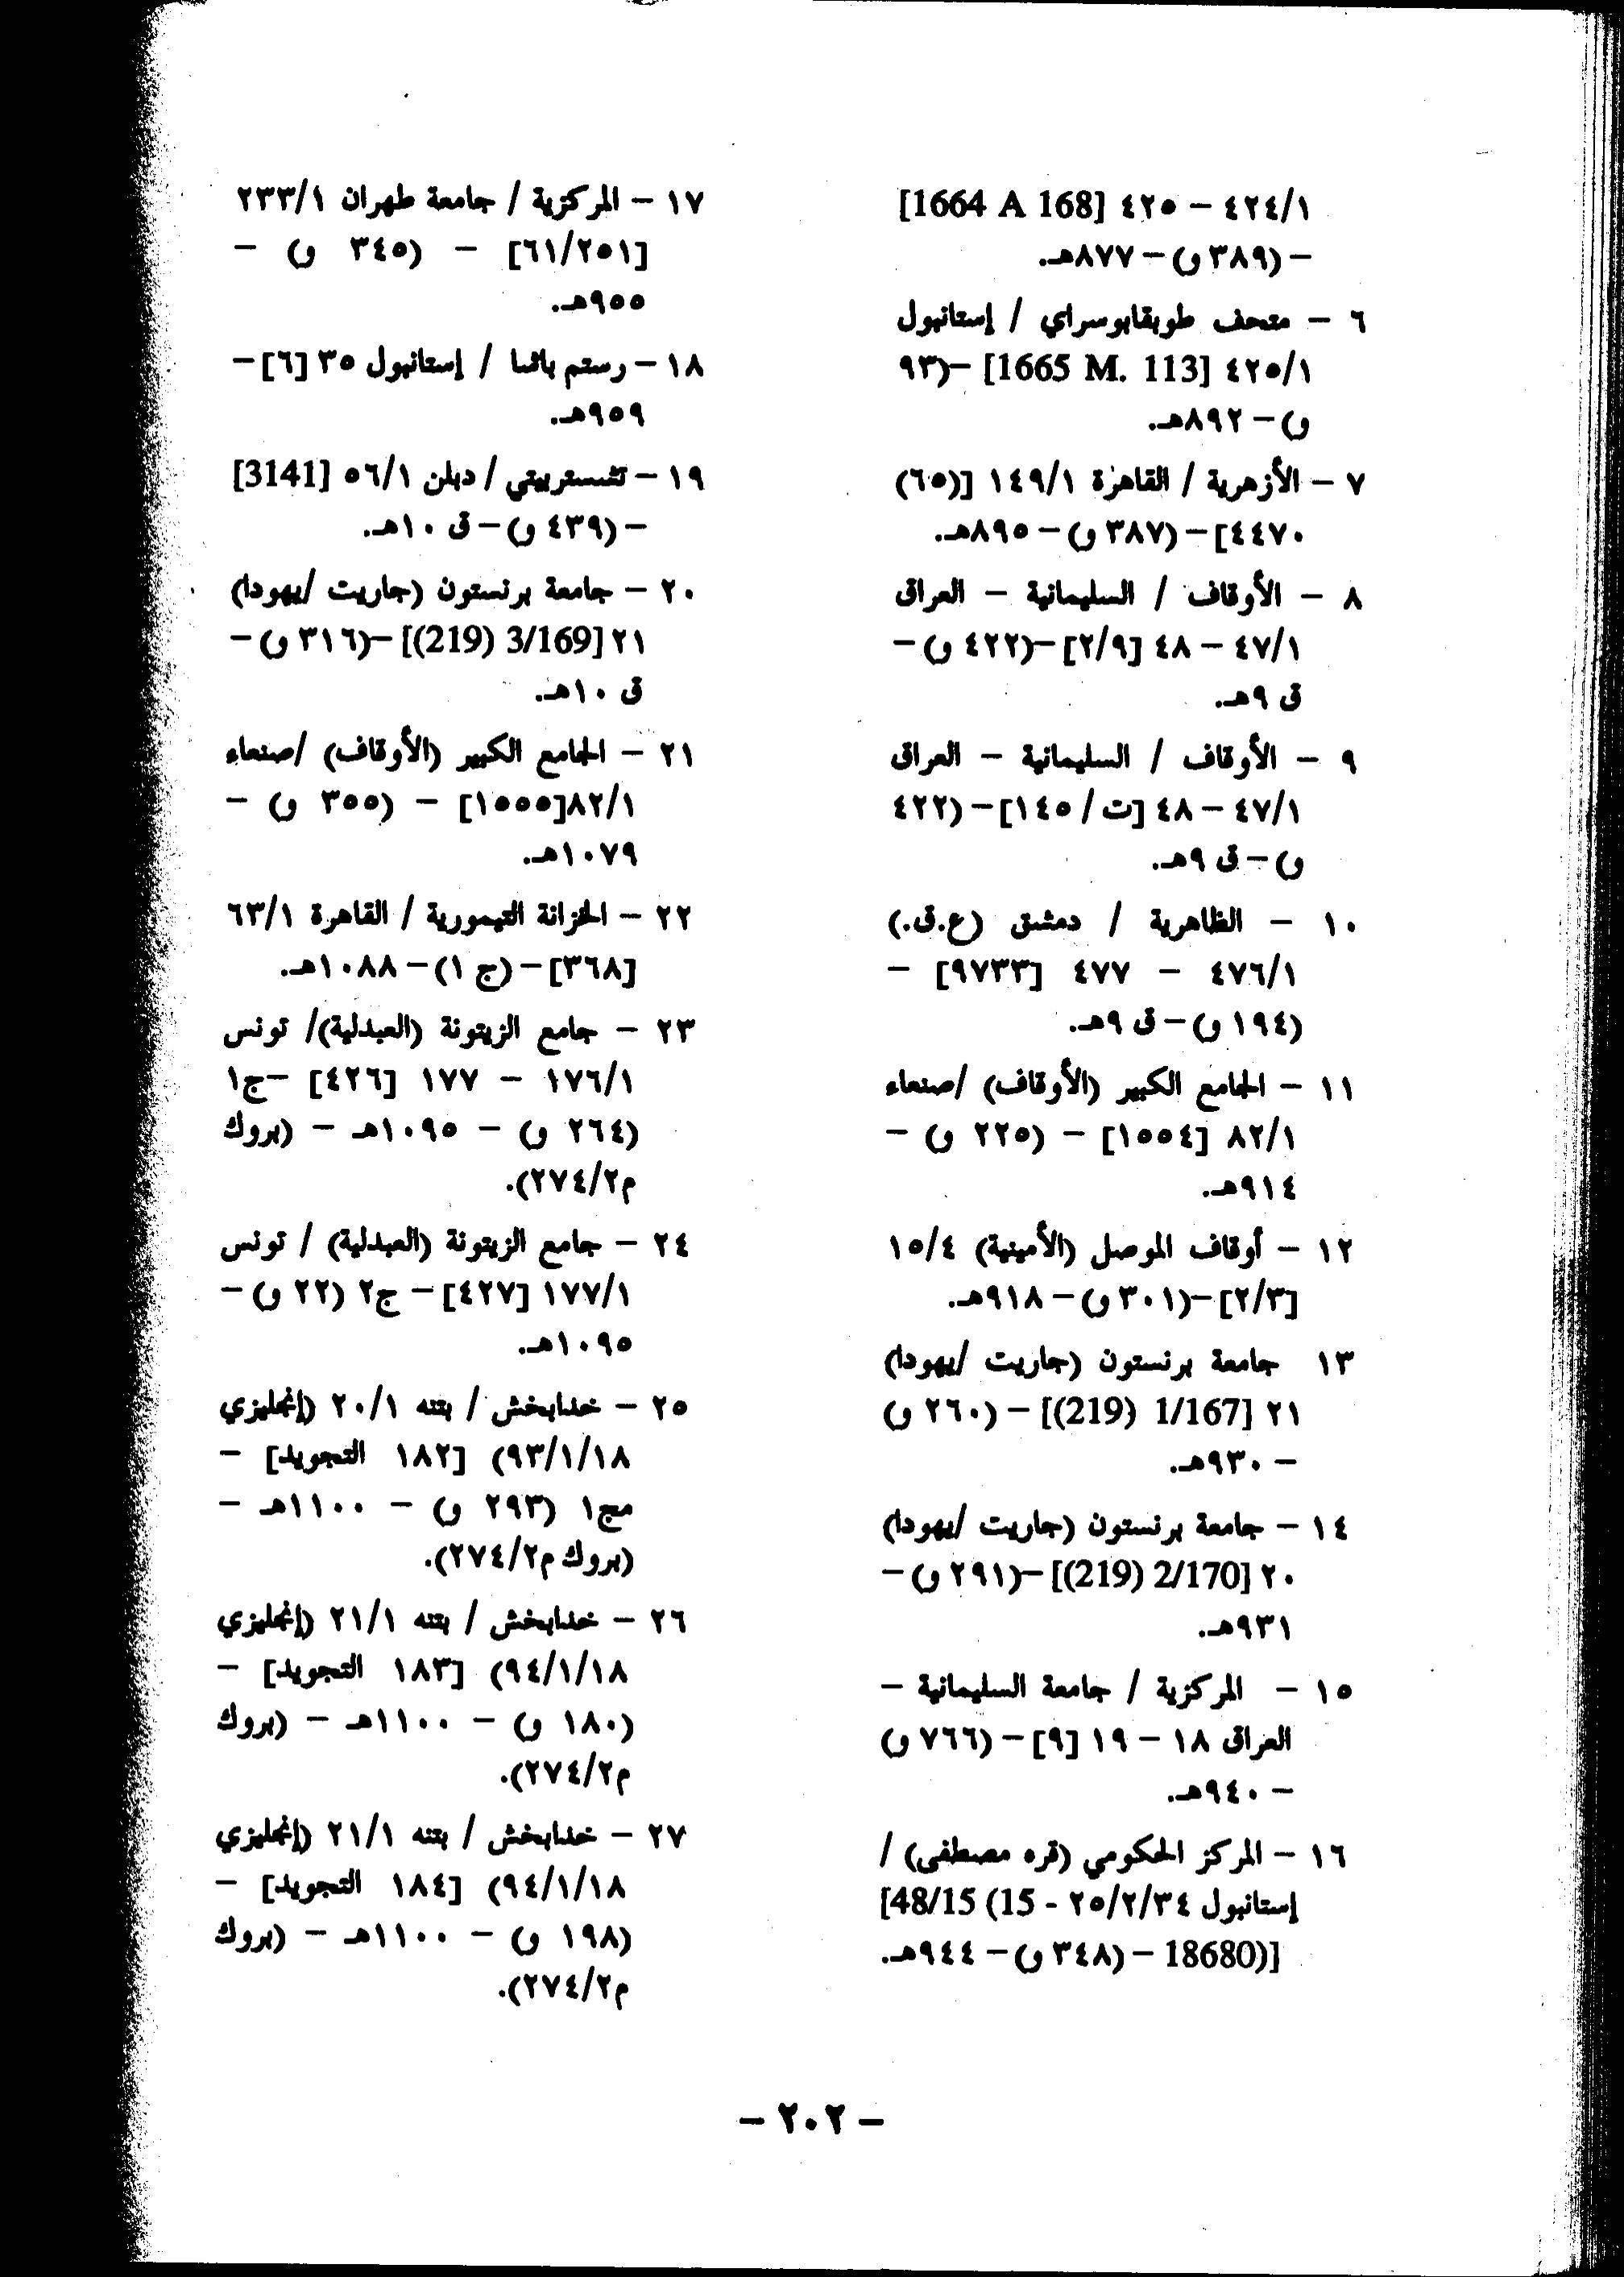 ٤٢٤/١ – ٤٢٥ [1664 A 168]
– (٣٨٩ و) – ٨٧٧هـ.
٦ – متحف طوبقابوسراي / إستانبول
٤٢٥/١ [1665 M. 113] – (٩٣
و) – ٨٩٢هـ.
٧ – الأزهرية / القاهرة ١٤٩/١ [(٦٥)
٤٤٧٠] – (٣٨٧ و) – ٨٩٥هـ.
٨ – الأوقاف / السليمانية – العراق
٤٧/١ – ٤٨ [٢/٩] – (٤٢٢ و) –
ق ٩هـ.
٩ – الأوقاف / السليمانية – العراق
٤٧/١ – ٤٨ [ت / ١٤٥] – (٤٢٢
و) – ق ٩هـ.
١٠ – الظاهرية / دمشق (ع.ق.)
٤٧٦/١ – ٤٧٧ [٩٧٣٣] –
(١٩٤ و) – ق ٩هـ.
١١ – الجامع الكبير (الأوقاف) /صنعاء
٨٢/١ [١٥٥٤] – (٢٢٥ و) –
٩١٤هـ.
١٢ – أوقاف الموصل (الأمينية) ١٥/٤
[٢/٣] – (٣٠١ و) – ٩١٨هـ.
١٣ جامعة برنستون (جاريت /يهودا)
٢١ [1/167 (219)] – (٢٦٠ و)
– ٩٣٠هـ.
١٤ – جامعة برنستون (جاريت /يهودا)
٢٠ [2/170 (219)] – (٢٩١ و) –
٩٣١هـ.
١٥ – المركزية / جامعة السليمانية –
العراق ١٨ – ١٩ [٩] – (٧٦٦ و)
– ٩٤٠هـ.
١٦ – المركز الحكومي (قره مصطفى) /
إستانبول ٢٥/٢/٣٤ - 15) 48/15]
[(18680 – (٣٤٨ و) – ٩٤٤هـ.
١٧ – المركزية / جامعة طهران ٢٣٣/١
[٦١/٢٥١] – (٣٤٥ و) –
٩٥٥هـ.
١٨ – رستم باشا / إستانبول ٣٥ [٦] –
٩٥٩هـ.
١٩ – تشستربيتي / دبلن ٥٦/١ [3141]
– (٤٣٩ و) – ق ١٠هـ.
٢٠ – جامعة برنستون (جاريت /يهودا)
٢١ [3/169 (219)] – (٣١٦ و) –
ق ١٠هـ.
٢١ – الجامع الكبير (الأوقاف) /صنعاء
٨٢/١[١٥٥٥] – (٣٥٥ و) –
١٠٧٩هـ.
٢٢ – الخزانة التيمورية / القاهرة ٦٣/١
[٣٦٨] – (ج ١) – ١٠٨٨هـ.
٢٣ – جامع الزيتونة (العبدلية)/ تونس
١٧٦/١ – ١٧٧ [٤٢٦] – ج١
(٢٦٤ و) – ١٠٩٥هـ – (بروك
م٢٧٤/٢).
٢٤ – جامع الزيتونة (العبدلية) / تونس
١٧٧/١ [٤٢٧] – ج٢ (٢٢ و) –
١٠٩٥هـ.
٢٥ – خدابخش / بتنه ٢٠/١ (إنجليزي
٩٣/١/١٨) [١٨٢ التجويد] –
مج١ (٢٩٣ و) – ١١٠٠هـ –
(بروك م٢٧٤/٢).
٢٦ – خدابخش / بتنه ٢١/١ (إنجليزي
٩٤/١/١٨) [١٨٣ التجويد] –
(١٨٠ و) – ١١٠٠هـ – (بروك
م٢٧٤/٢).
٢٧ – خدابخش / بتنه ٢١/١ (إنجليزي
٩٤/١/١٨) [١٨٤ التجويد] –
(١٩٨ و) – ١١٠٠هـ – (بروك
م٢٧٤/٢).
– ٢٠٢ –